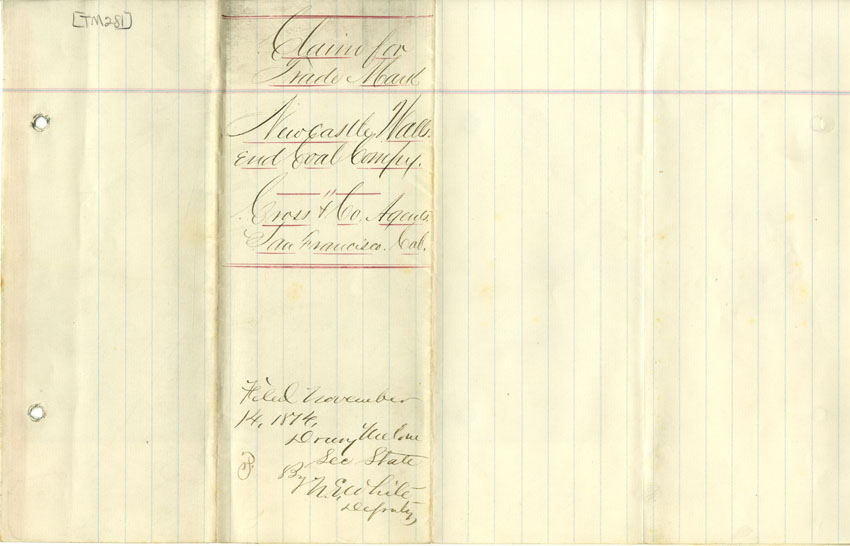 [TM281]
Claim for
Trade Mark
Newcastle Walls
End Coal Compy.
"
Cross & Co. Agents
San Francisco. Cal.
Filed November
14, 1874,
Drury Melone
Sec State
By
N.E. White
Deputy